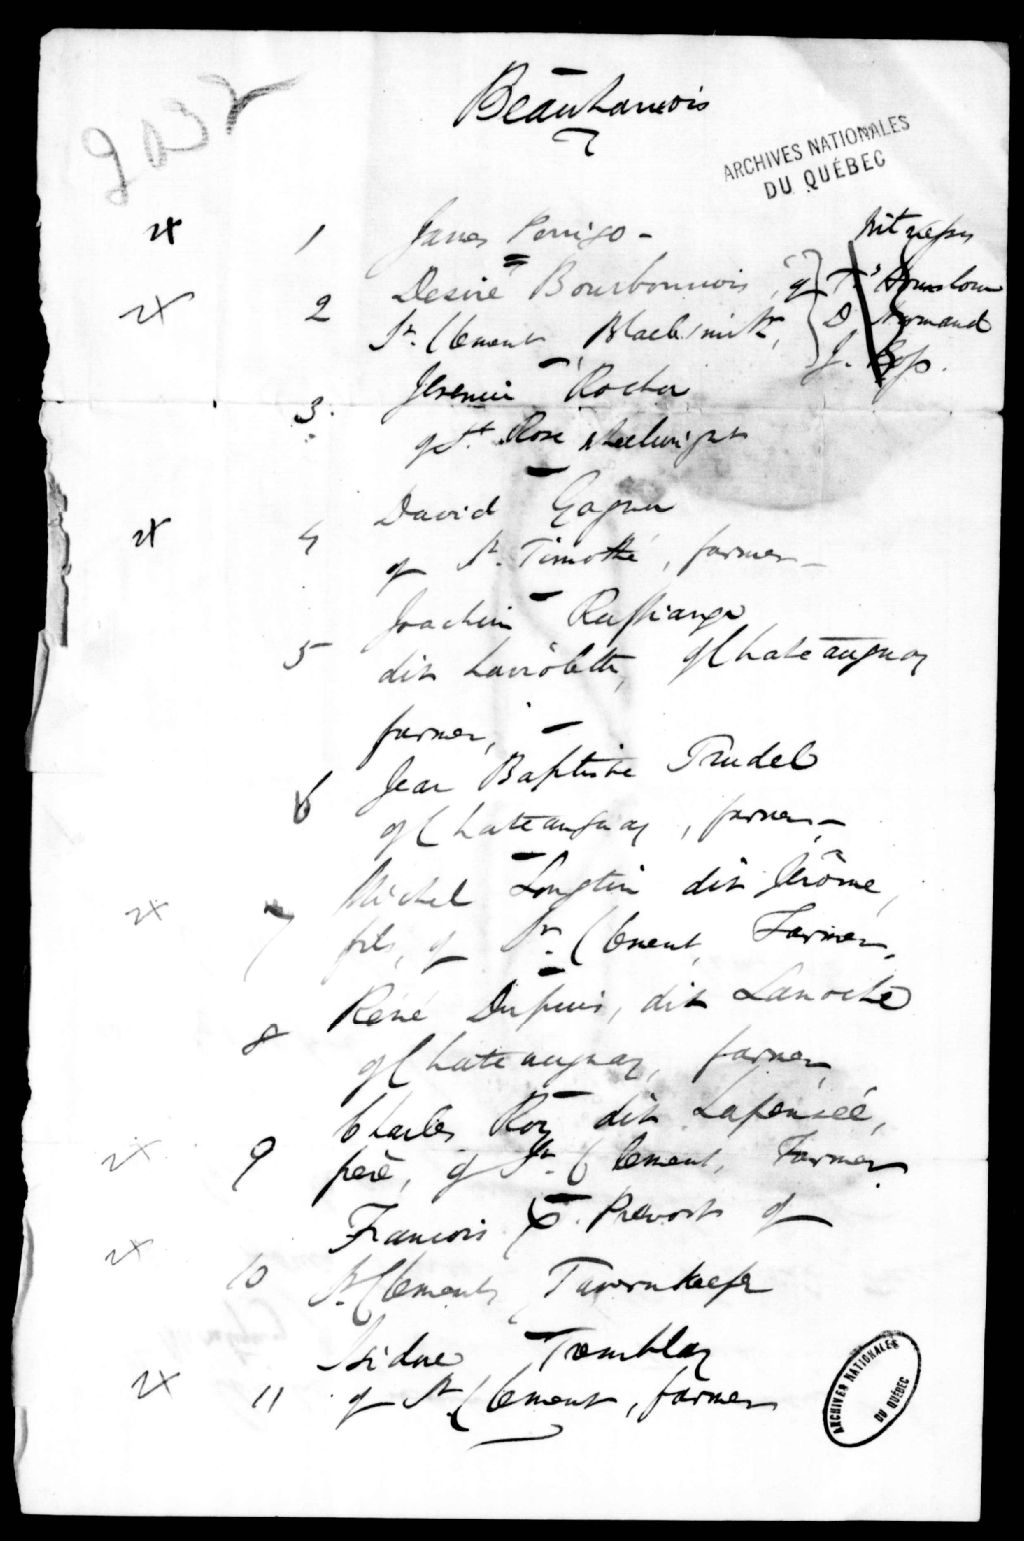 Beauharnois
2032
ARCHIVES NATIONALES
DU QUÉBEC
x 1 James Perrigo - Witnesses
x 2 Desiré Bourbonnois, of
St. Clement Blacksmith, D Normand
J. Ross.
3. Jeremie Rocher
of St. Rose wheelwright
David Gagner
x 4 of St. Timothé, farmer -
Joachim
5 dit Laviolette, of Chateauguay
farmer,
6 Jean Baptiste Trudel
of Chateauguay, farmer -
x 7 Michel Longtin dit Jérôme,
fils, of St. Clement, Farmer,
8 Réné Dupuis, dit Laroche
of Chateauguay, farmer,
Charles Roy dit Lapensée,
x 9 père, of St. Clement, Farmer
x Francois X. Prevost of
10 St. Clement, Tavernkeeper
Isidore Tremblay
x 11 of St Clement, farmer
ARCHIVES NATIONALES
DU QUÉBEC